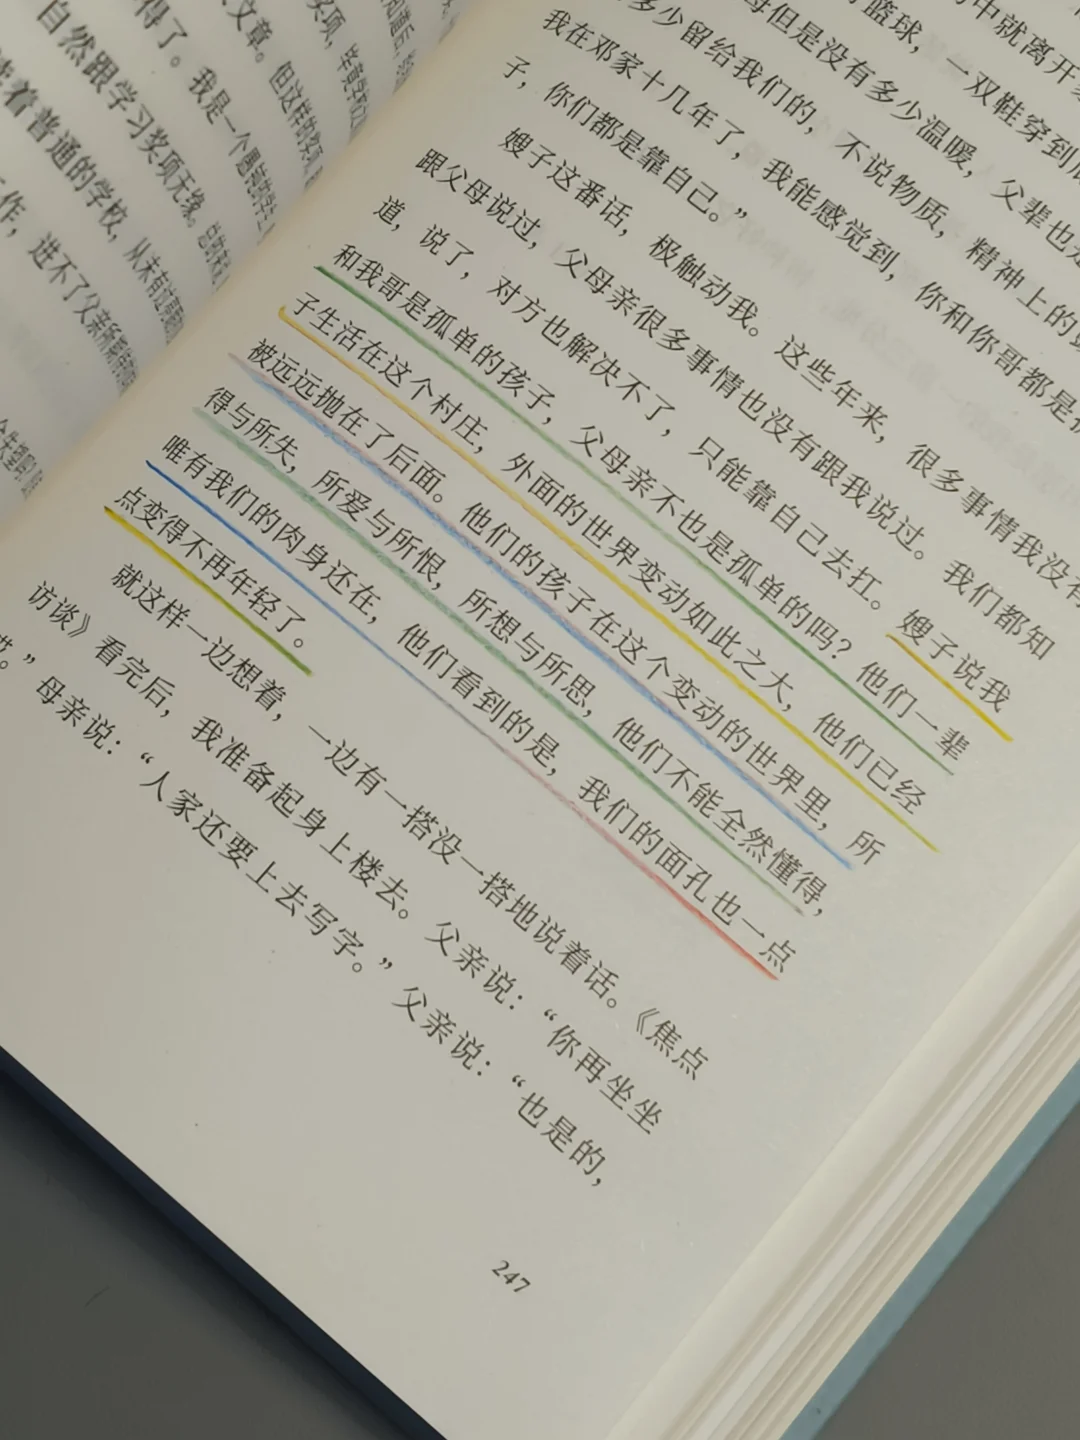 得了。我是一个愚钝的学生
自然跟学习奖项无缘。
着普通的学校，从未有过
作，进不了父亲所期待的
文章。但这样的奖项
奖项，毕竟学校
知道后，
中就离开
篮球，一双鞋穿到底
母但是没有多少温暖，父辈也是
多少留给我们的，不说物质，精神上的
我在邓家十几年了，我能感觉到，你和你哥都是
子，你们都是靠自己。”
嫂子这番话，极触动我。这些年来，很多事情我没有
跟父母说过，父母亲很多事情也没有跟我说过。我们都知
道，说了，对方也解决不了，只能靠自己去扛。嫂子说我
和我哥是孤单的孩子，父母亲不也是孤单的吗？他们一辈
子生活在这个村庄，外面的世界变动如此之大，他们已经
被远远抛在了后面。他们的孩子在这个变动的世界里，所
得与所失，所爱与所恨，所想与所思，他们不能全然懂得，
唯有我们的肉身还在，他们看到的是，我们的面孔也一点
点变得不再年轻了。
就这样一边想着，一边有一搭没一搭地说着话。《焦点
访谈》看完后，我准备起身上楼去。父亲说：“你再坐坐
。”母亲说：“人家还要上去写字。”父亲说：“也是的，
247